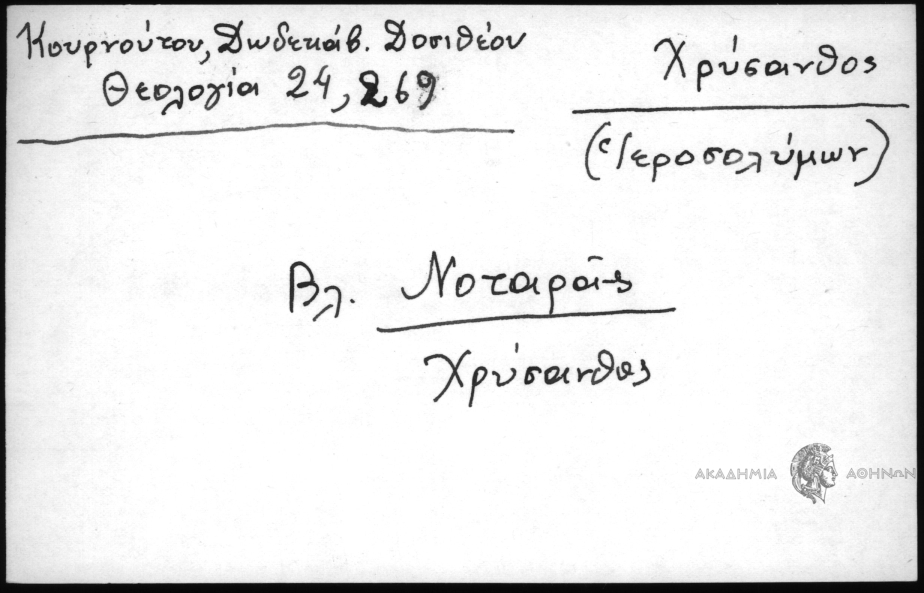 Κουρνούτου, Δωδεκάβ. Δοσιθέου
Θεολογία 24, 269
Χρύσανθος
(Ἱεροσολύμων)
Βλ. Νοταρᾶς
Χρύσανθος
ΑΚΑΔΗΜΙΑ ΑΘΗΝΩΝ